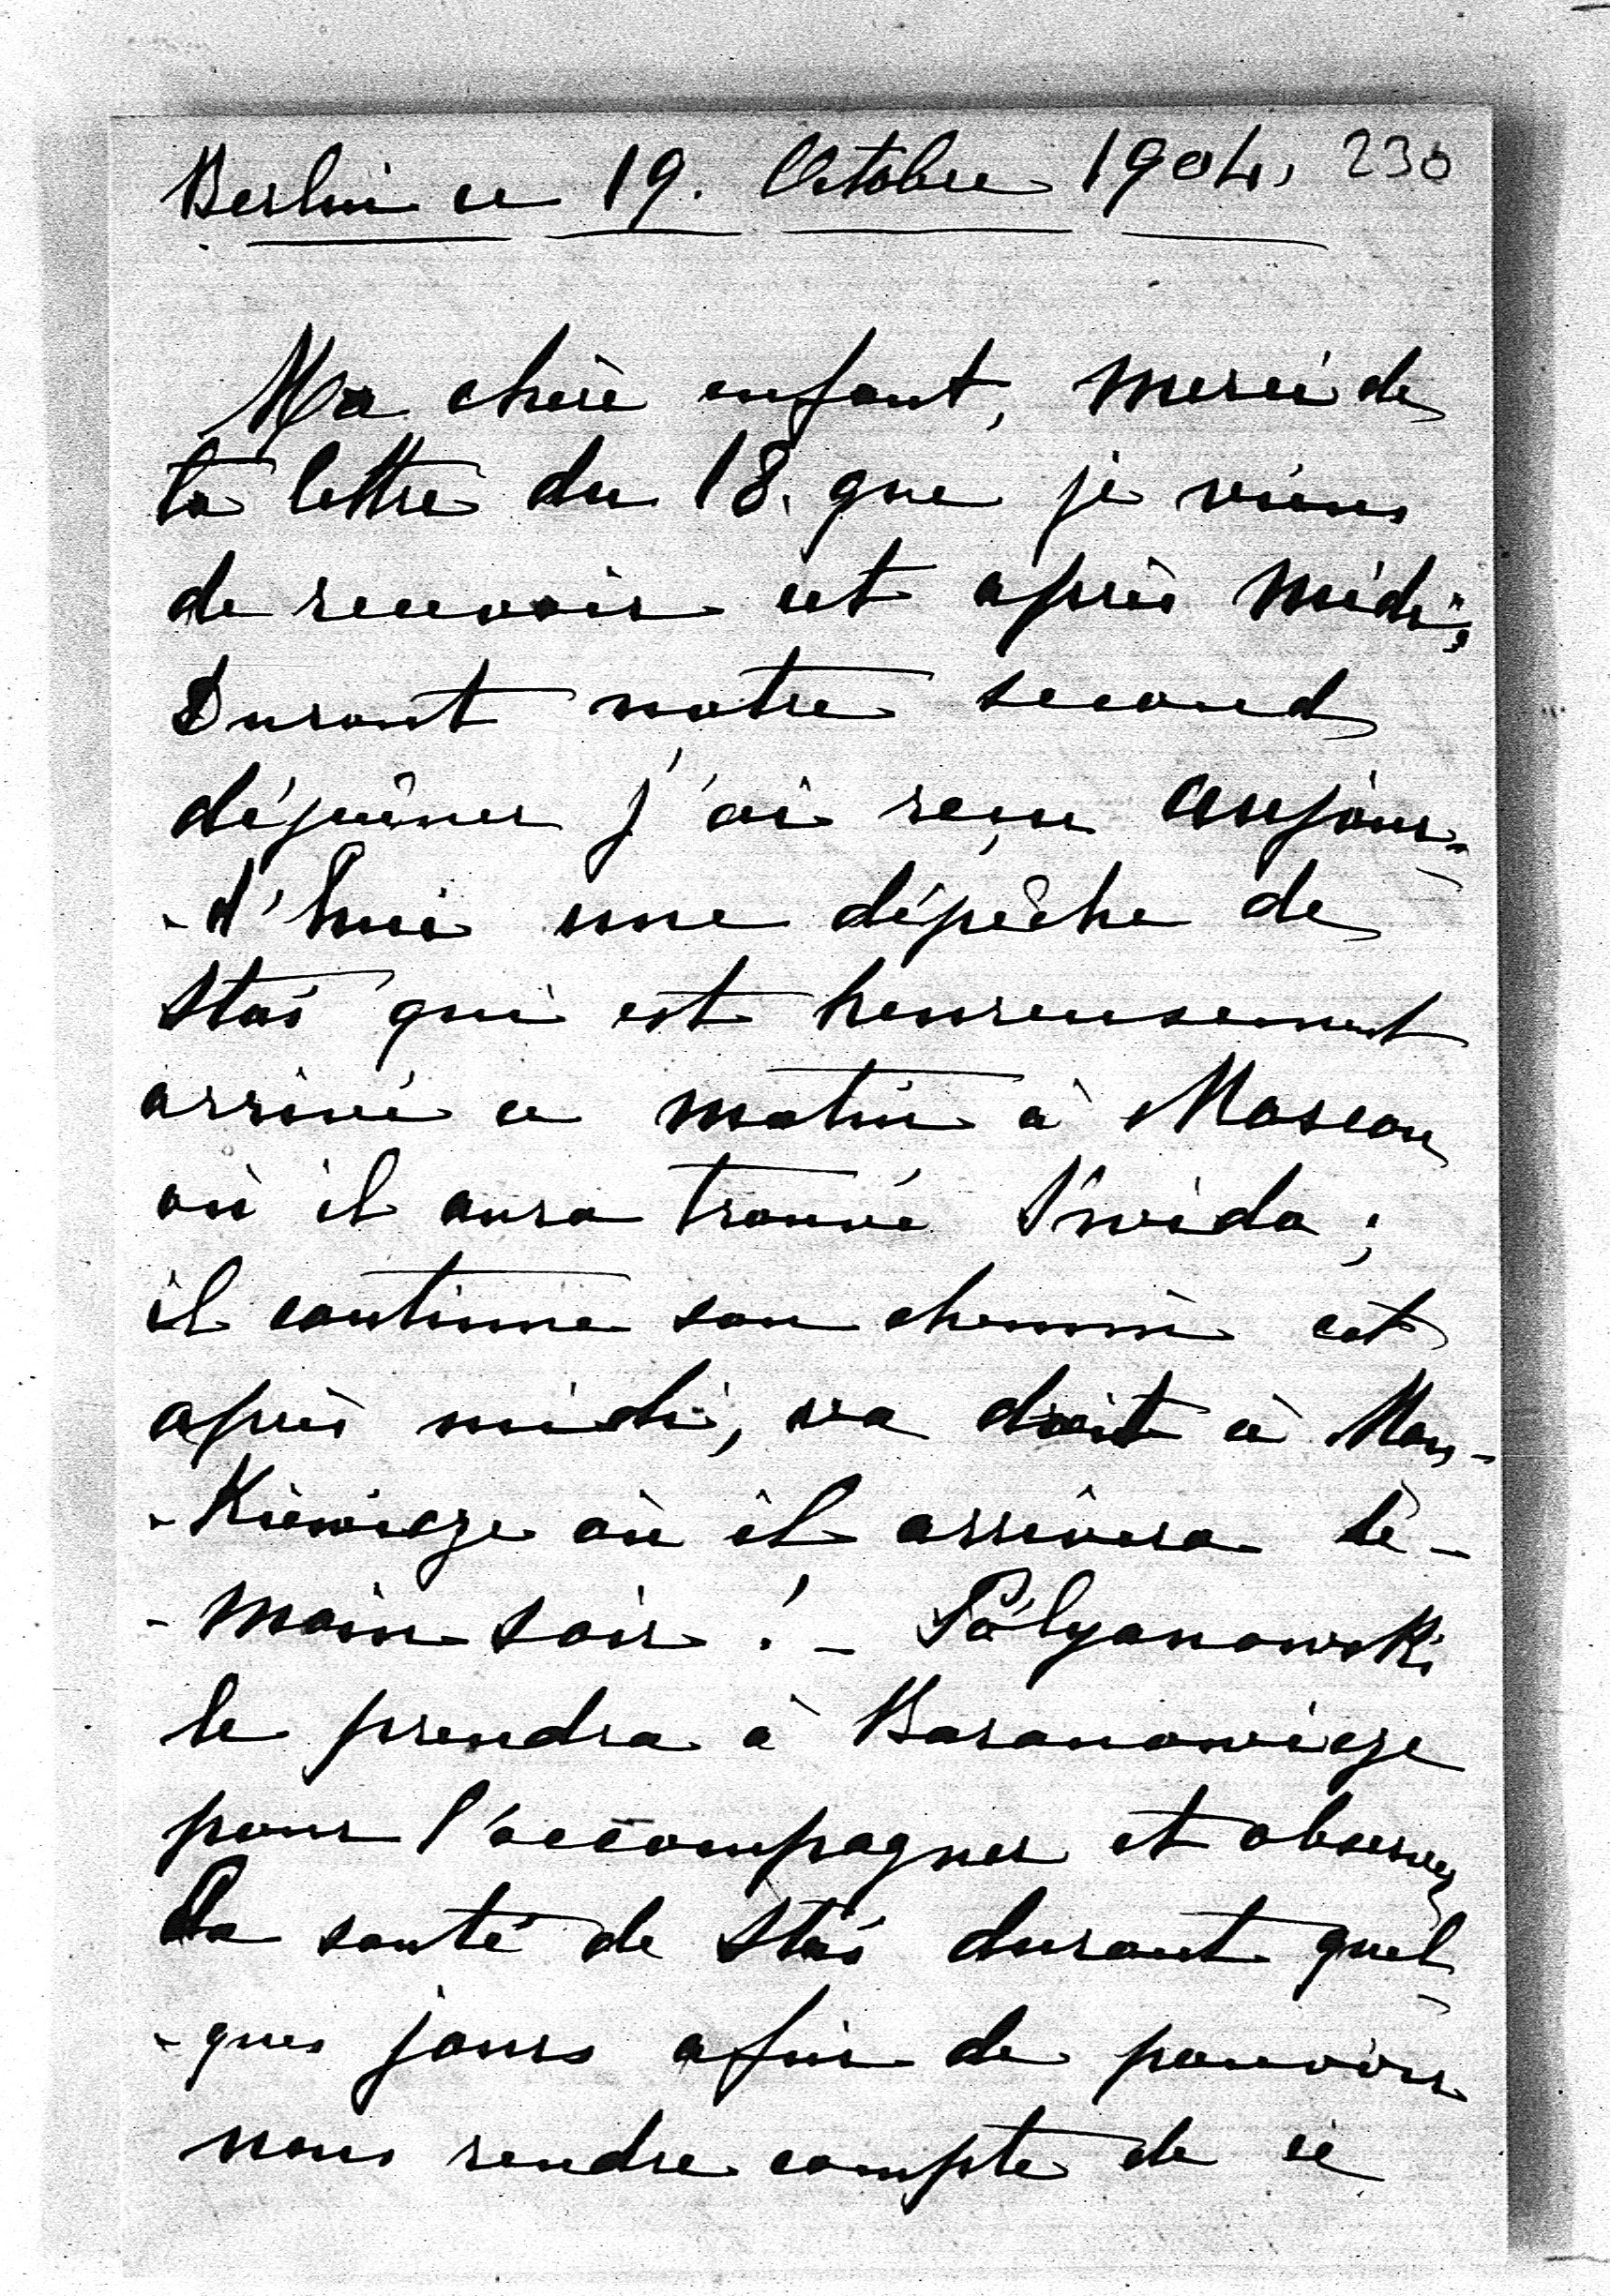 Berlin ce 19. Octobre 1904, 230
Ma chère enfant, merci de
ta lettre du 18. que je viens
de recevoir cet après midi;
Durant notre second
déjeûner j'ai reçu aujour-
-d'hui une dépêche de
Staś qui est heureusement
arrivé ce matin à Moscou
où il aura trouvé Świda;
il continue son chemin cet
après midi, va droit à Man-
-Kiewicze où il arrivera de-
-main soir! - Pólyanowski
le prendra à Baranowicze
pour l'accompagner et observer
la santé de Staś durant quel-
-ques jours afin de pouvoir
nous rendre compte de ce